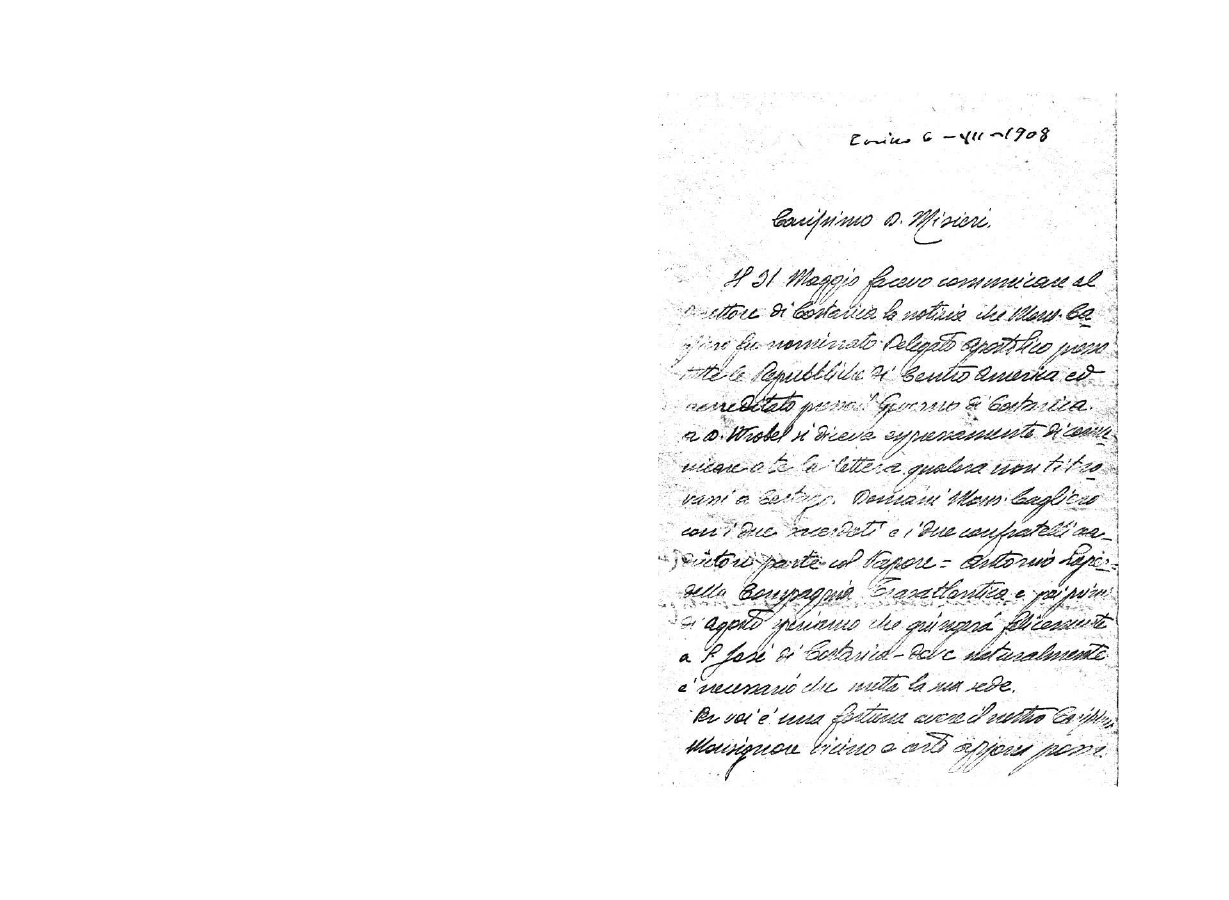 Torino 6 - VII - 1908
Carissimo D. Misieri.
Il 31 Maggio facevo communicare al
di Costarica la notizia che Mons. Ca-
fu nominato Delegato Apostolico presso
tutte le Repubbliche di Centro America ed
accreditato presso il Governo di Costarica.
a D. Wrobel si diceva espressamente di comu-
nicare a te la lettera qualora non ti tro-
vassi a Cartago. Domani Mons. Cagliero
con i due sacerdoti e i due confratelli coa-
diutori parte col Vapore = Antonio Lopez =
della Compagnia Transatlantica e pei primi
di agosto speriamo che giungerà felicemente
a S. José di Costarica - dove naturalmente
è necessario che metta la sua sede.
Per voi è una fortuna avere il nostro Carissimo
Monsignore vicino e certo appena